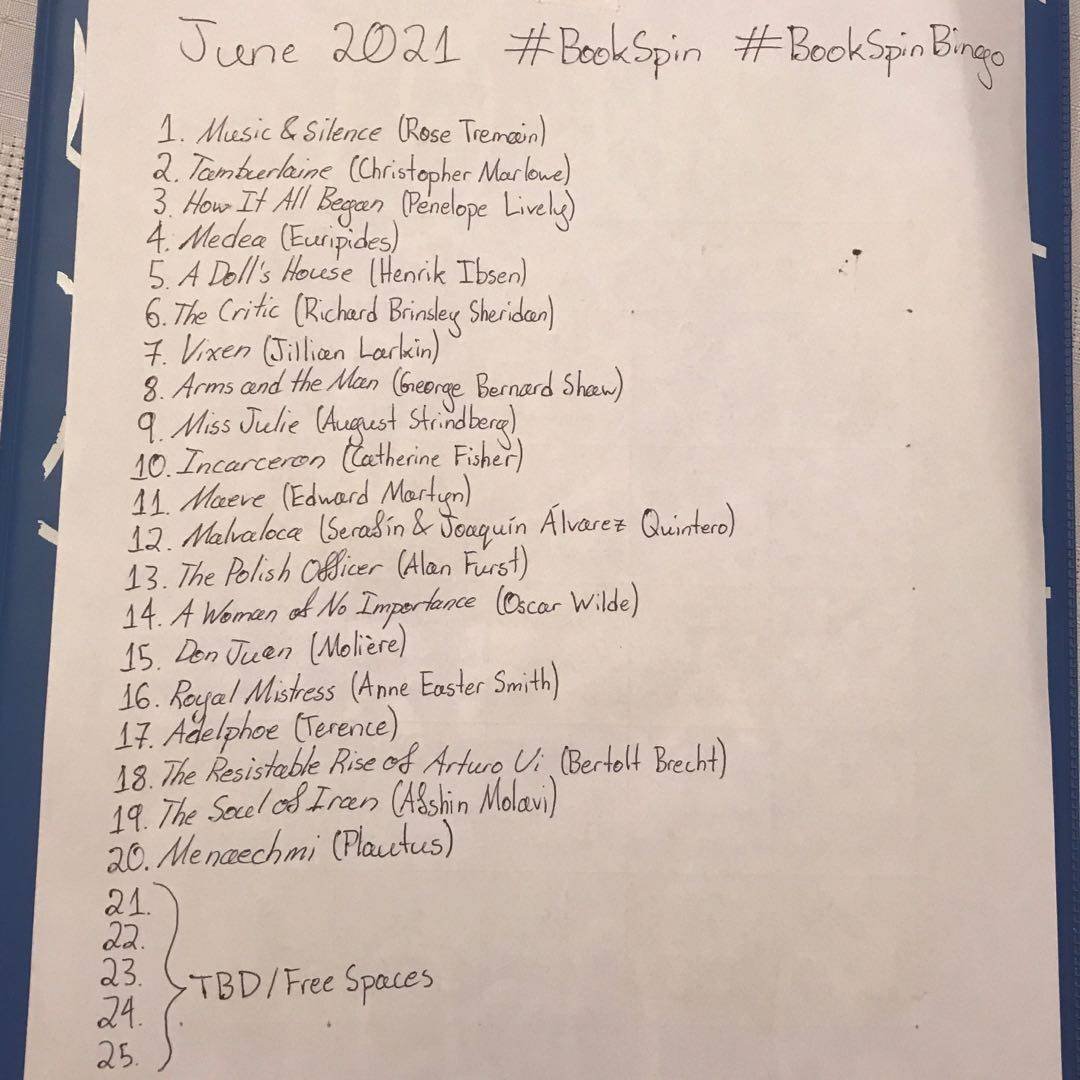 June 2021 #BookSpin #BookSpinBingo
1. Music & Silence (Rose Tremain)
2. Tamburlaine (Christopher Marlowe)
3. How It All Began (Penelope Lively)
4. Medea (Euripides)
5. A Doll's House (Henrik Ibsen)
6. The Critic (Richard Brinsley Sheridan)
7. Vixen (Jillian Larkin)
8. Arms and the Man (George Bernard Shaw)
9. Miss Julie (August Strindberg)
10. Incarceron (Catherine Fisher)
11. Maeve (Edward Martyn)
12. Malvaloca (Serafín & Joaquín Álvarez Quintero)
13. The Polish Officer (Alan Furst)
14. A Woman of No Importance (Oscar Wilde)
15. Don Juan (Molière)
16. Royal Mistress (Anne Easter Smith)
17. Adelphoe (Terence)
18. The Resistable Rise of Arturo Ui (Bertolt Brecht)
19. The Soul of Iran (Afshin Molavi)
20. Menaechmi (Plautus)
21.
22.
23. TBD/Free Spaces
24.
25.